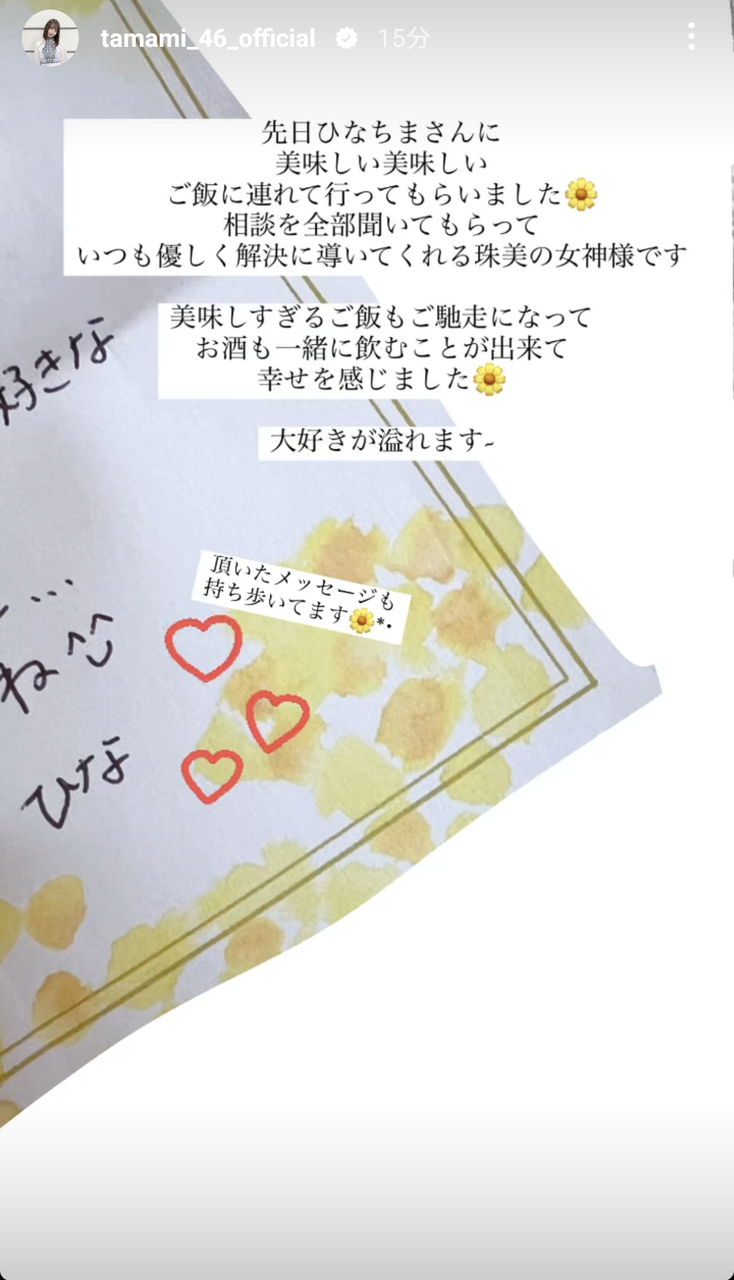 tamami_46_official 15分
先日ひなちまさんに
美味しい美味しい
ご飯に連れて行ってもらいました🌼
相談を全部聞いてもらって
いつも優しく解決に導いてくれる珠美の女神様です
美味しすぎるご飯もご馳走になって
お酒も一緒に飲むことが出来て
幸せを感じました🌼
大好きが溢れます~
好きな
頂いたメッセージも
持ち歩いてます🌼*•
…
ね^^
ひな